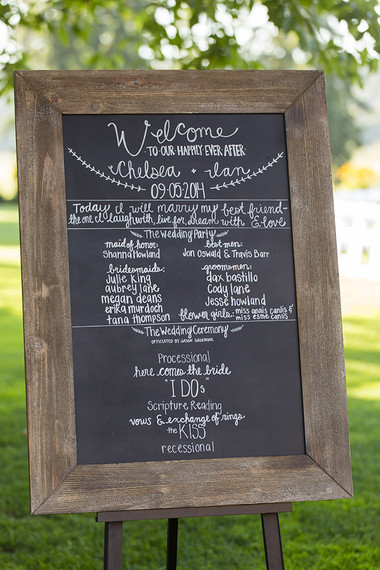 Welcome
TO OUR HAPPILY EVER AFTER
Chelsea + Ian
09.05.2014
Today I will marry my best friend-
the one I laugh with, live for, dream with & love
The Wedding Party
maid of honor:
Shanna Howland
best men:
Jon Oswald & Travis Barr
bridesmaids:
Julie King
aubrey lane
megan deans
erika murdock
tana thompson
groomsmen:
dax bastillo
Cody lane
Jesse howland
flower girls- miss anais canlis &
miss esme canlis
The Wedding Ceremony
OFFICIATED BY JASON
Processional
here comes the bride
"I DOs"
Scripture Reading
vows & exchange of rings
the KISS
recessional